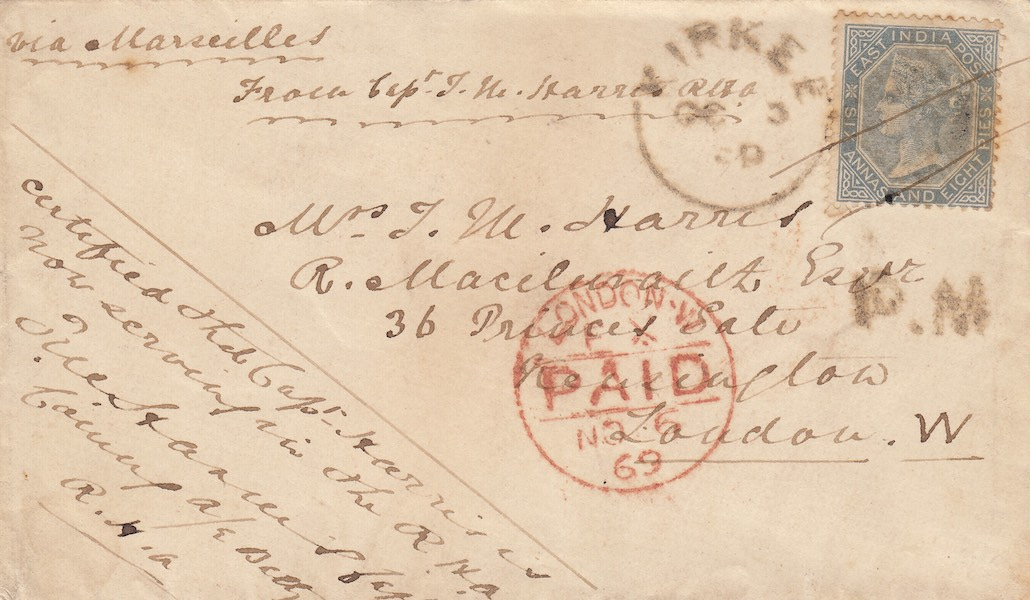 via Marseilles
From Capt. T. M. Harris RHA
KIRKEE
3
EAST INDIA POST
SIX ANNAS AND EIGHT PIES
Mrs T. M. Harris
R. Macilwraith Esqr
36 Princes Gate
Kensington
London. W
P.M
LONDON·W
PAID
NO 6
69
certified that Capt. Harris is
now serving in the R.H.A
Capt
Comg A/E Batty
R.H.A